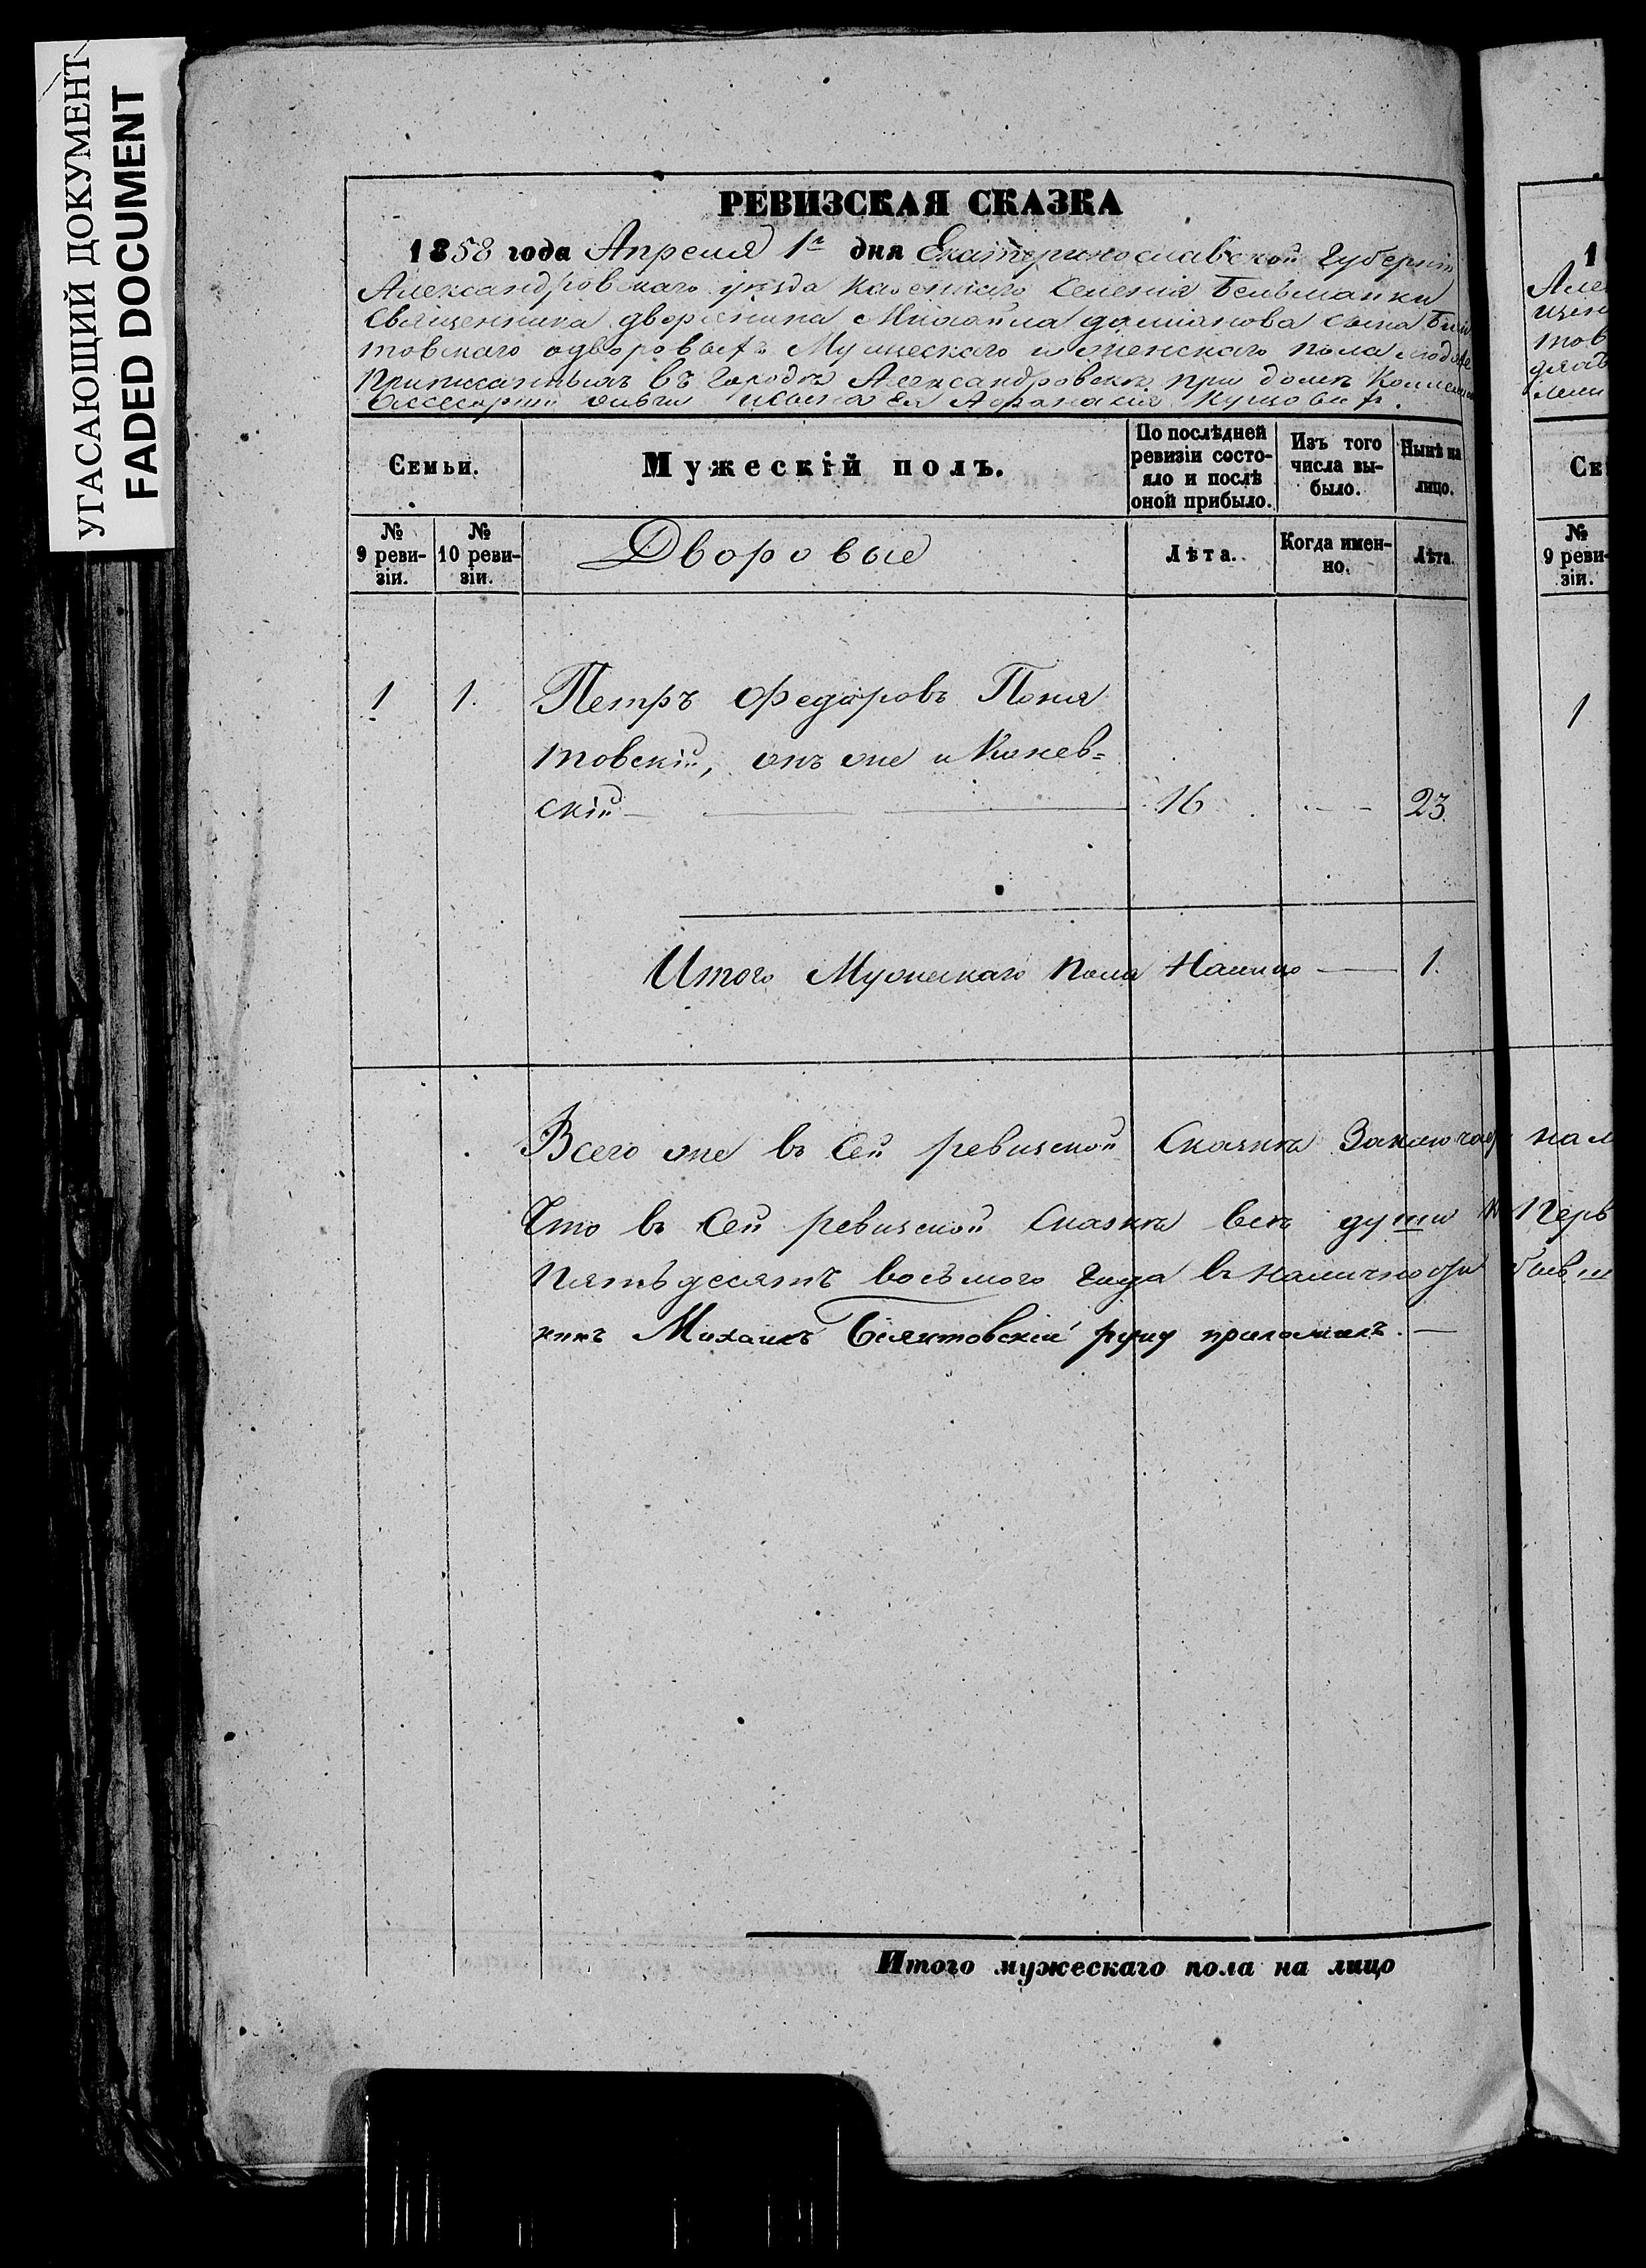 УГАСАЮЩИЙ ДОКУМЕНТ
FADED DOCUMENT
РЕВИЗСКАЯ СКАЗКА
1858 года Апреля 1го дня Екатеринославской Губерніи
Александровскаго уѣзда Казеннаго Селенія Бельманки
Священника дворянина Михаила даміанова сына
товскаго одворовыхъ Мужескаго и женскаго пола людяхъ
Приписанныхъ въ Городѣ Александровскѣ при домѣ
Ассесорши сына Ея Афанасія
Семьи.
Мужескій полъ.
По послѣдней ревизіи состо-
яло и послѣ
оной прибыло.
Изъ того
числа вы-
было.
Нынѣ на
лицо.
№
9 реви-
зіи.
№
10 реви-
зіи.
Дворовые
Лѣта.
Когда имен-
но.
Лѣта.
1 1. Петръ Федоровъ Поня
товскій, онъ же и Каневъ=
скій 16 23.
Итого Мужескаго Пола Налицо 1.
Всего же въ Сей ревизской Сказкѣ Заключает
Что въ Сей ревизской Сказкѣ всѣ души
Пятьдесятъ восьмого Года въ наличности
никъ Михаилъ Билятовскій руку приложилъ.
Итого мужескаго пола на лицо
1
Але
щен
тов
Се
№
9 реви-
зіи.
1
нал
Перв
бывш